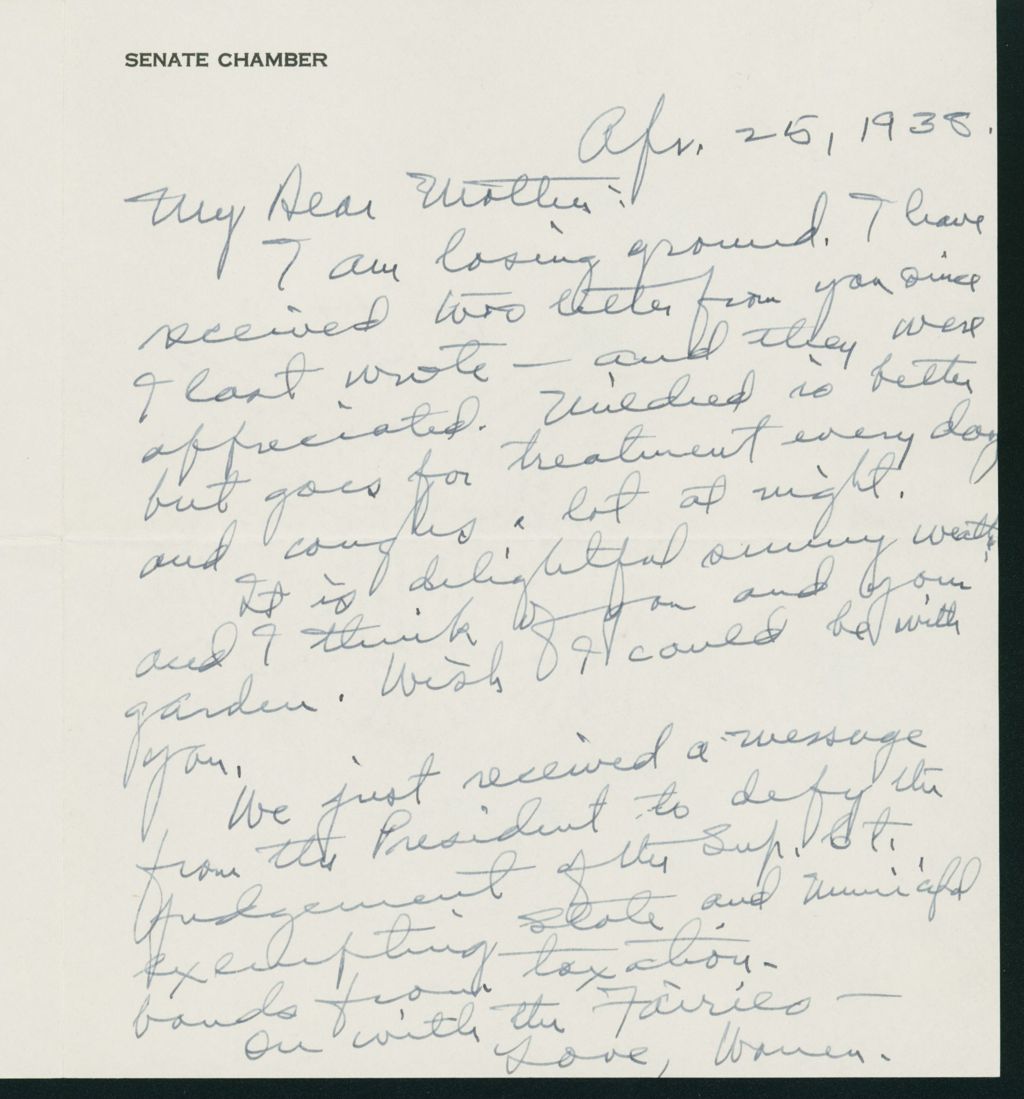 SENATE CHAMBER
Apr. 25, 1938.
My Dear Mother:
I am losing ground. I have
received two letters from you since
I last wrote — and they were
appreciated. Mildred is better
but goes for treatment every day
and coughs a lot at night.
It is delightful sunny weather
and I think of you and your
garden. Wish I could be with
you.
We just received a message
from the President to defy the
judgement of the Sup. Ct.
exempting State and Municipal
bonds from taxation.
On with the Fairies —
Love, Warren.